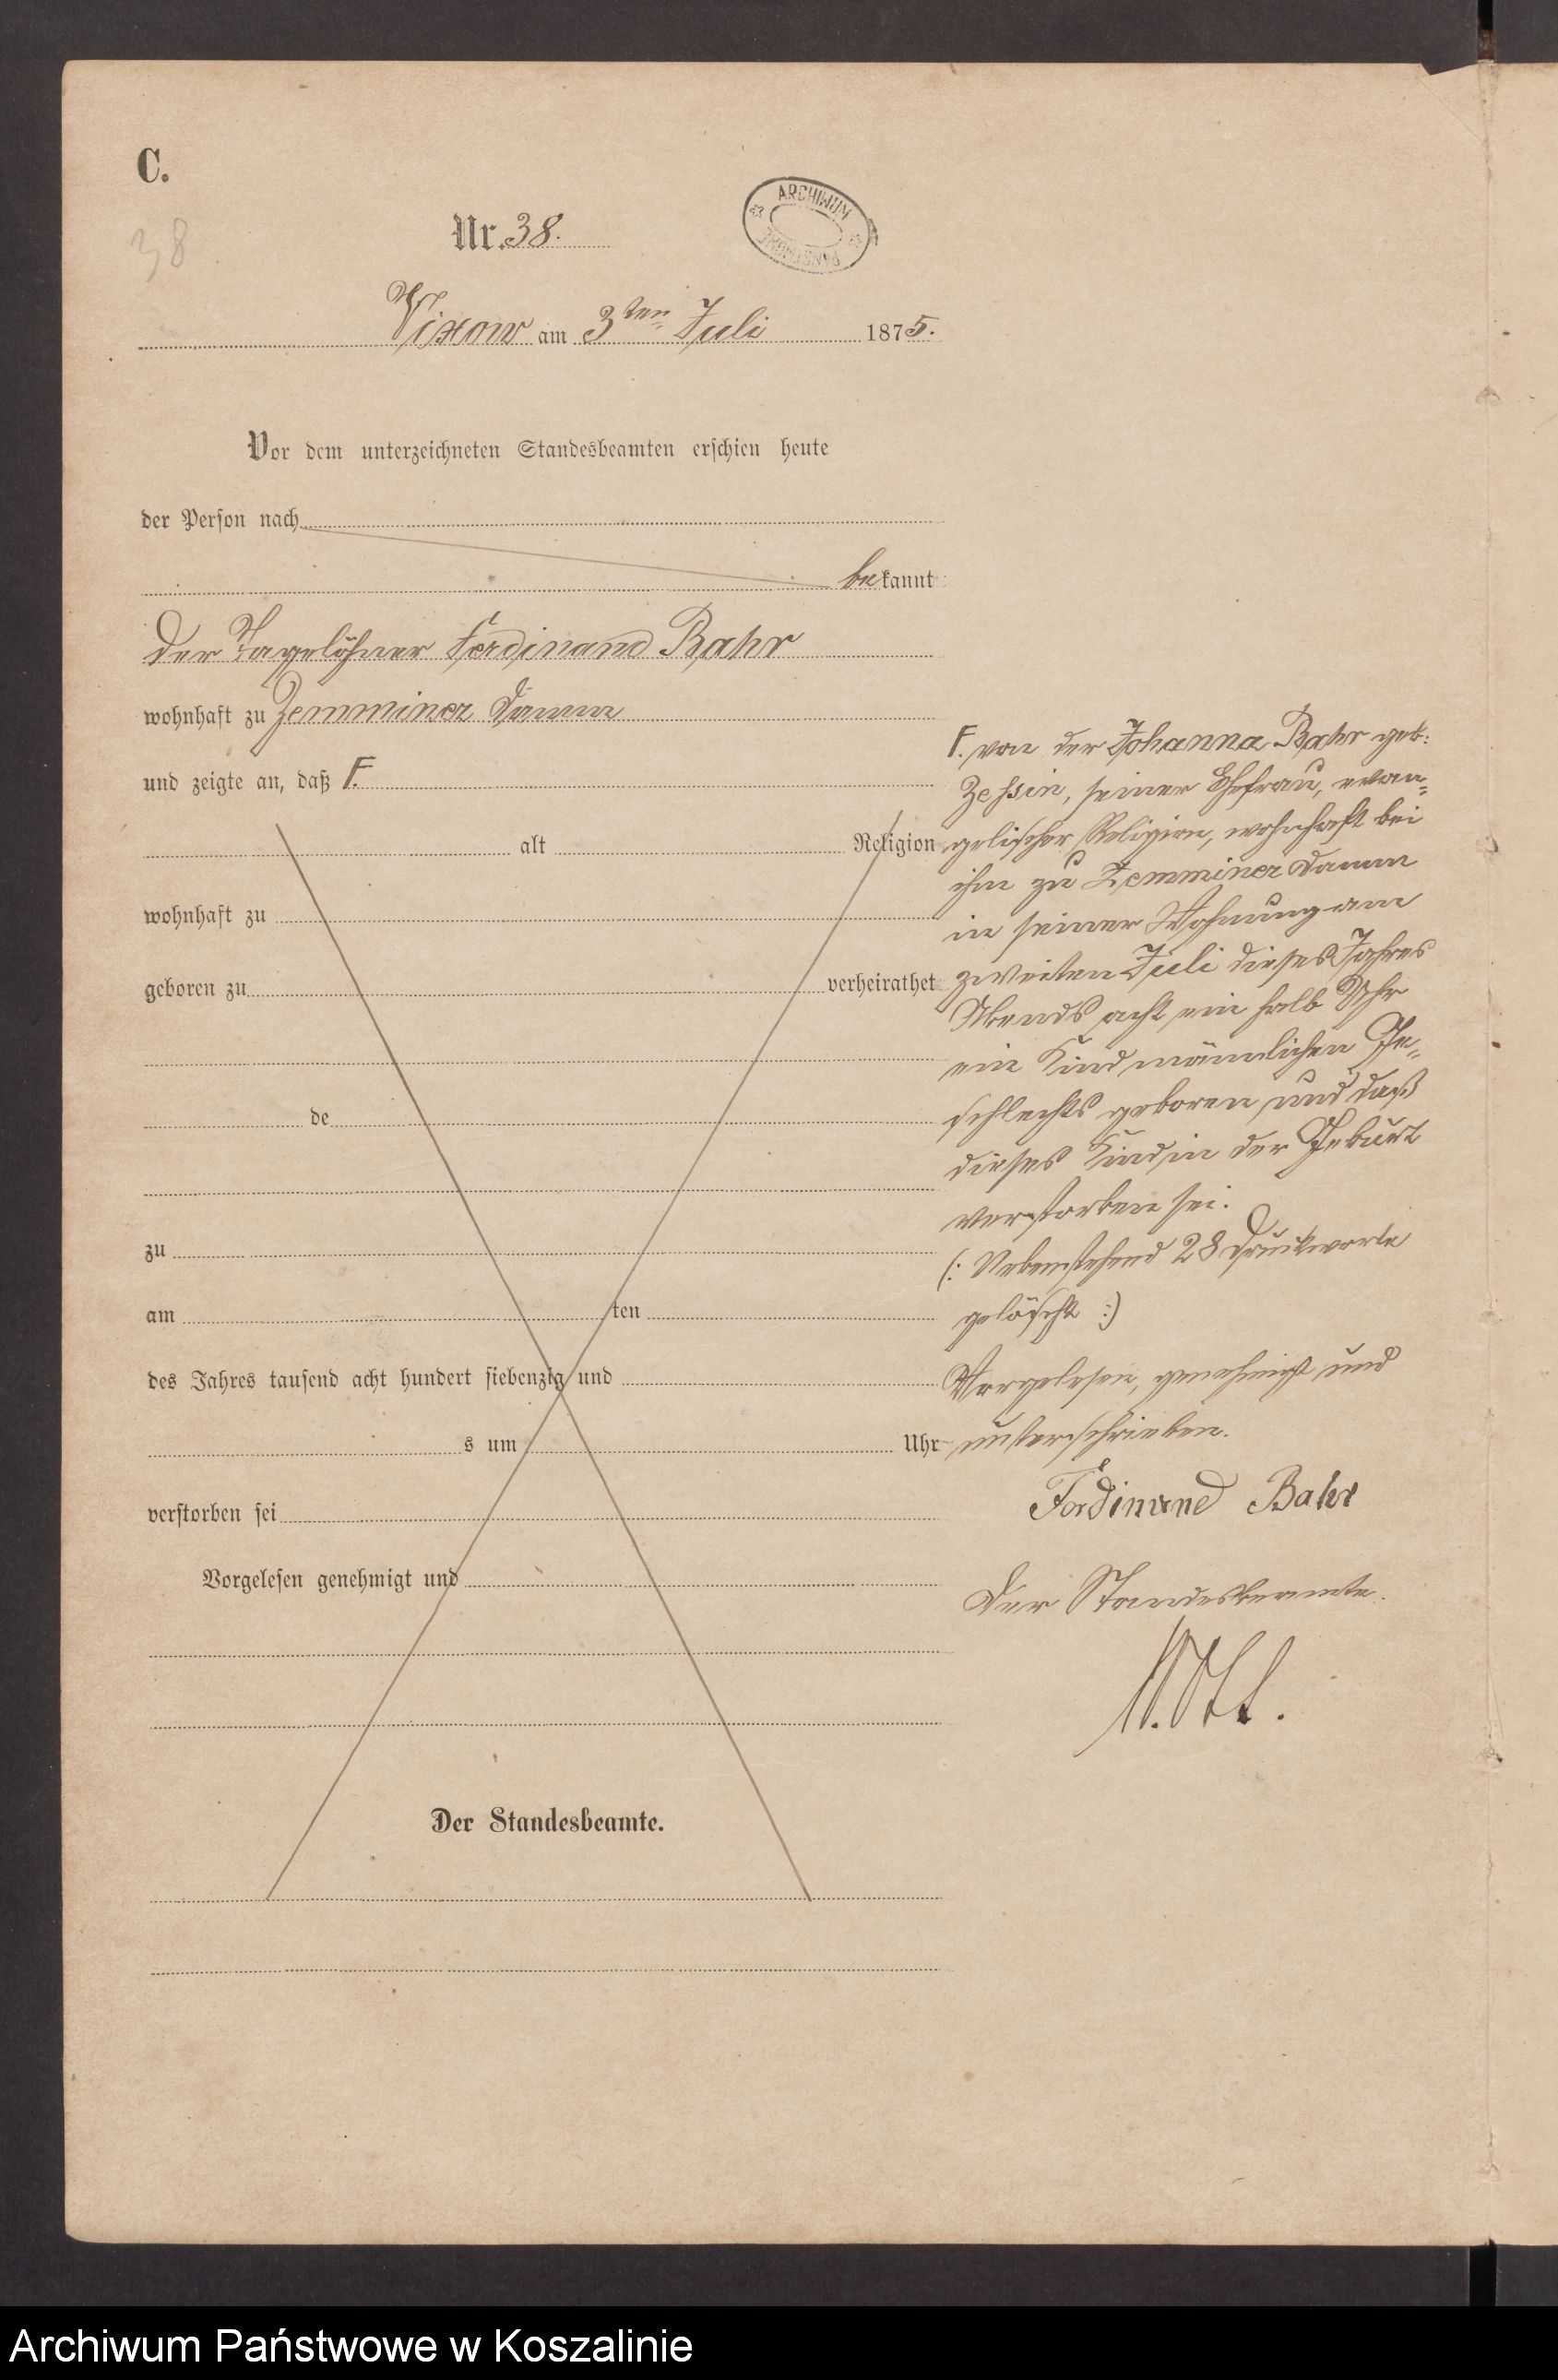 C.
38
Nr. 38.
ARCHIWUM
PAŃSTWOWE
Vixow am 3ten Juli 1875.
Vor dem unterzeichneten Standesbeamten erschien heute
der Person nach
bekannt
der Tagelöhner Ferdinand Bahr
wohnhaft zu Zemminer Damm
und zeigte an, daß F.
alt Religion
wohnhaft zu
geboren zu verheirathet
de
zu
am ten
des Jahres tausend acht hundert siebenzig und
s um Uhr
verstorben sei
Vorgelesen genehmigt und
Der Standesbeamte.
F. von der Johanna Bahr geb:
Zessin, seiner Ehefrau, evan=
gelischer Religion, wohnhaft bei
ihm zu Zemminer Damm
in seiner Wohnung am
zweiten Juli dieses Jahres
Abends acht ein halb Uhr
ein Kind männlichen Ge=
schlechts geboren und daß
dieses Kind in der Geburt
verstorben sei.
(: Nebenstehend 28 Druckworte
gelöscht :)
Vorgelesen, genehmigt und
unterschrieben.
Ferdinand Bahr
Der Standesbeamte.
Archiwum Państwowe w Koszalinie